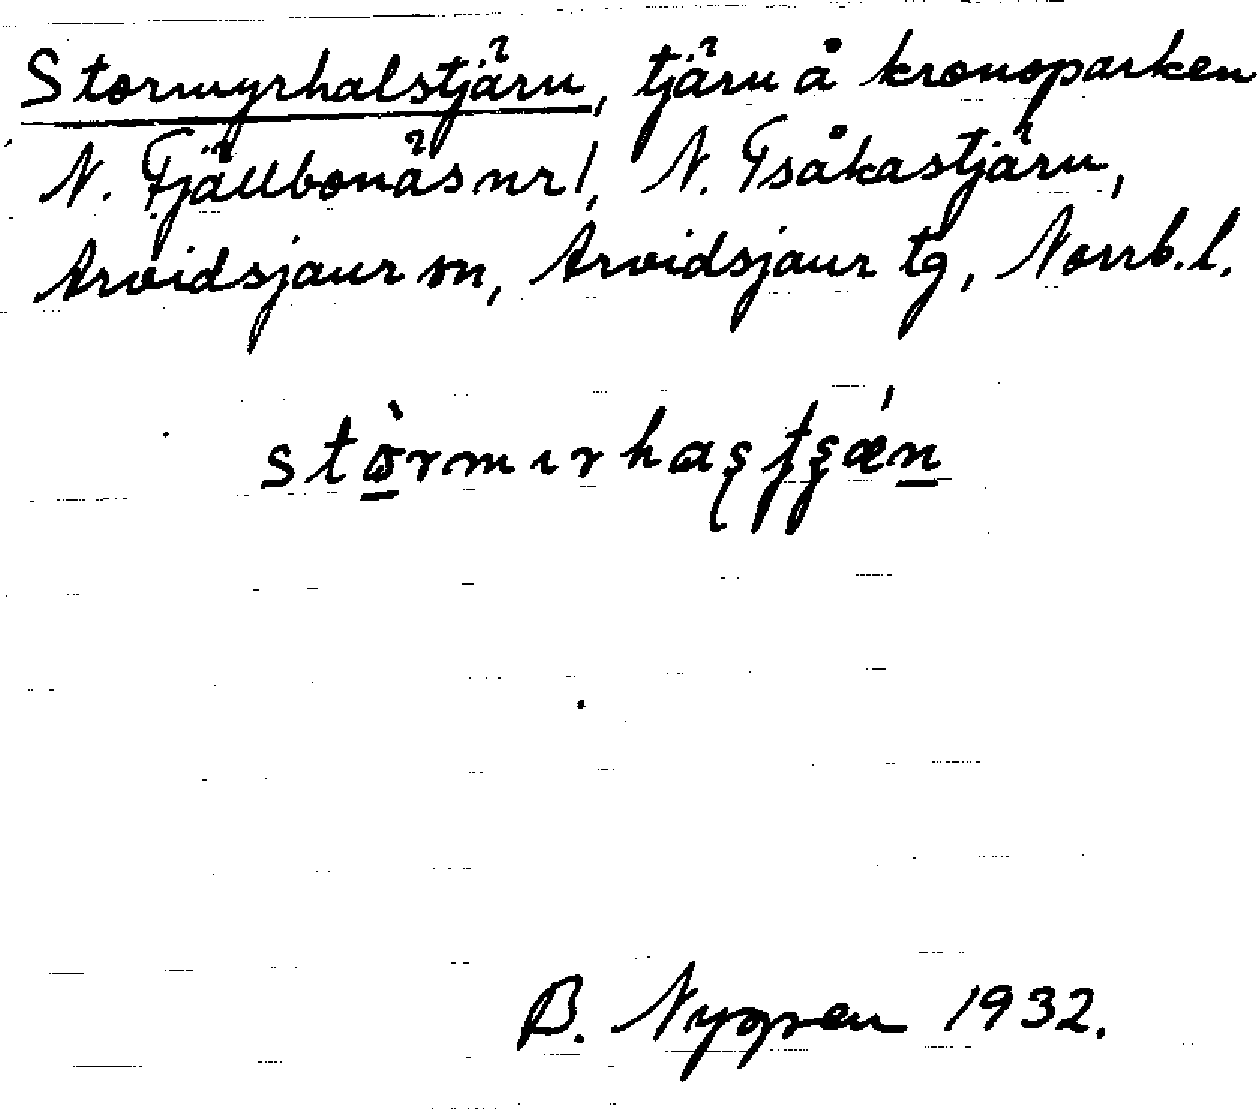 Stormyrhalstjärn, tjärn å kronoparken
N. Fjällbonäs nr 1, N. Tsåkastjärn,
Arvidsjaur sn, Arvidsjaur tg, Norrb. l.
B. Nygren 1932.